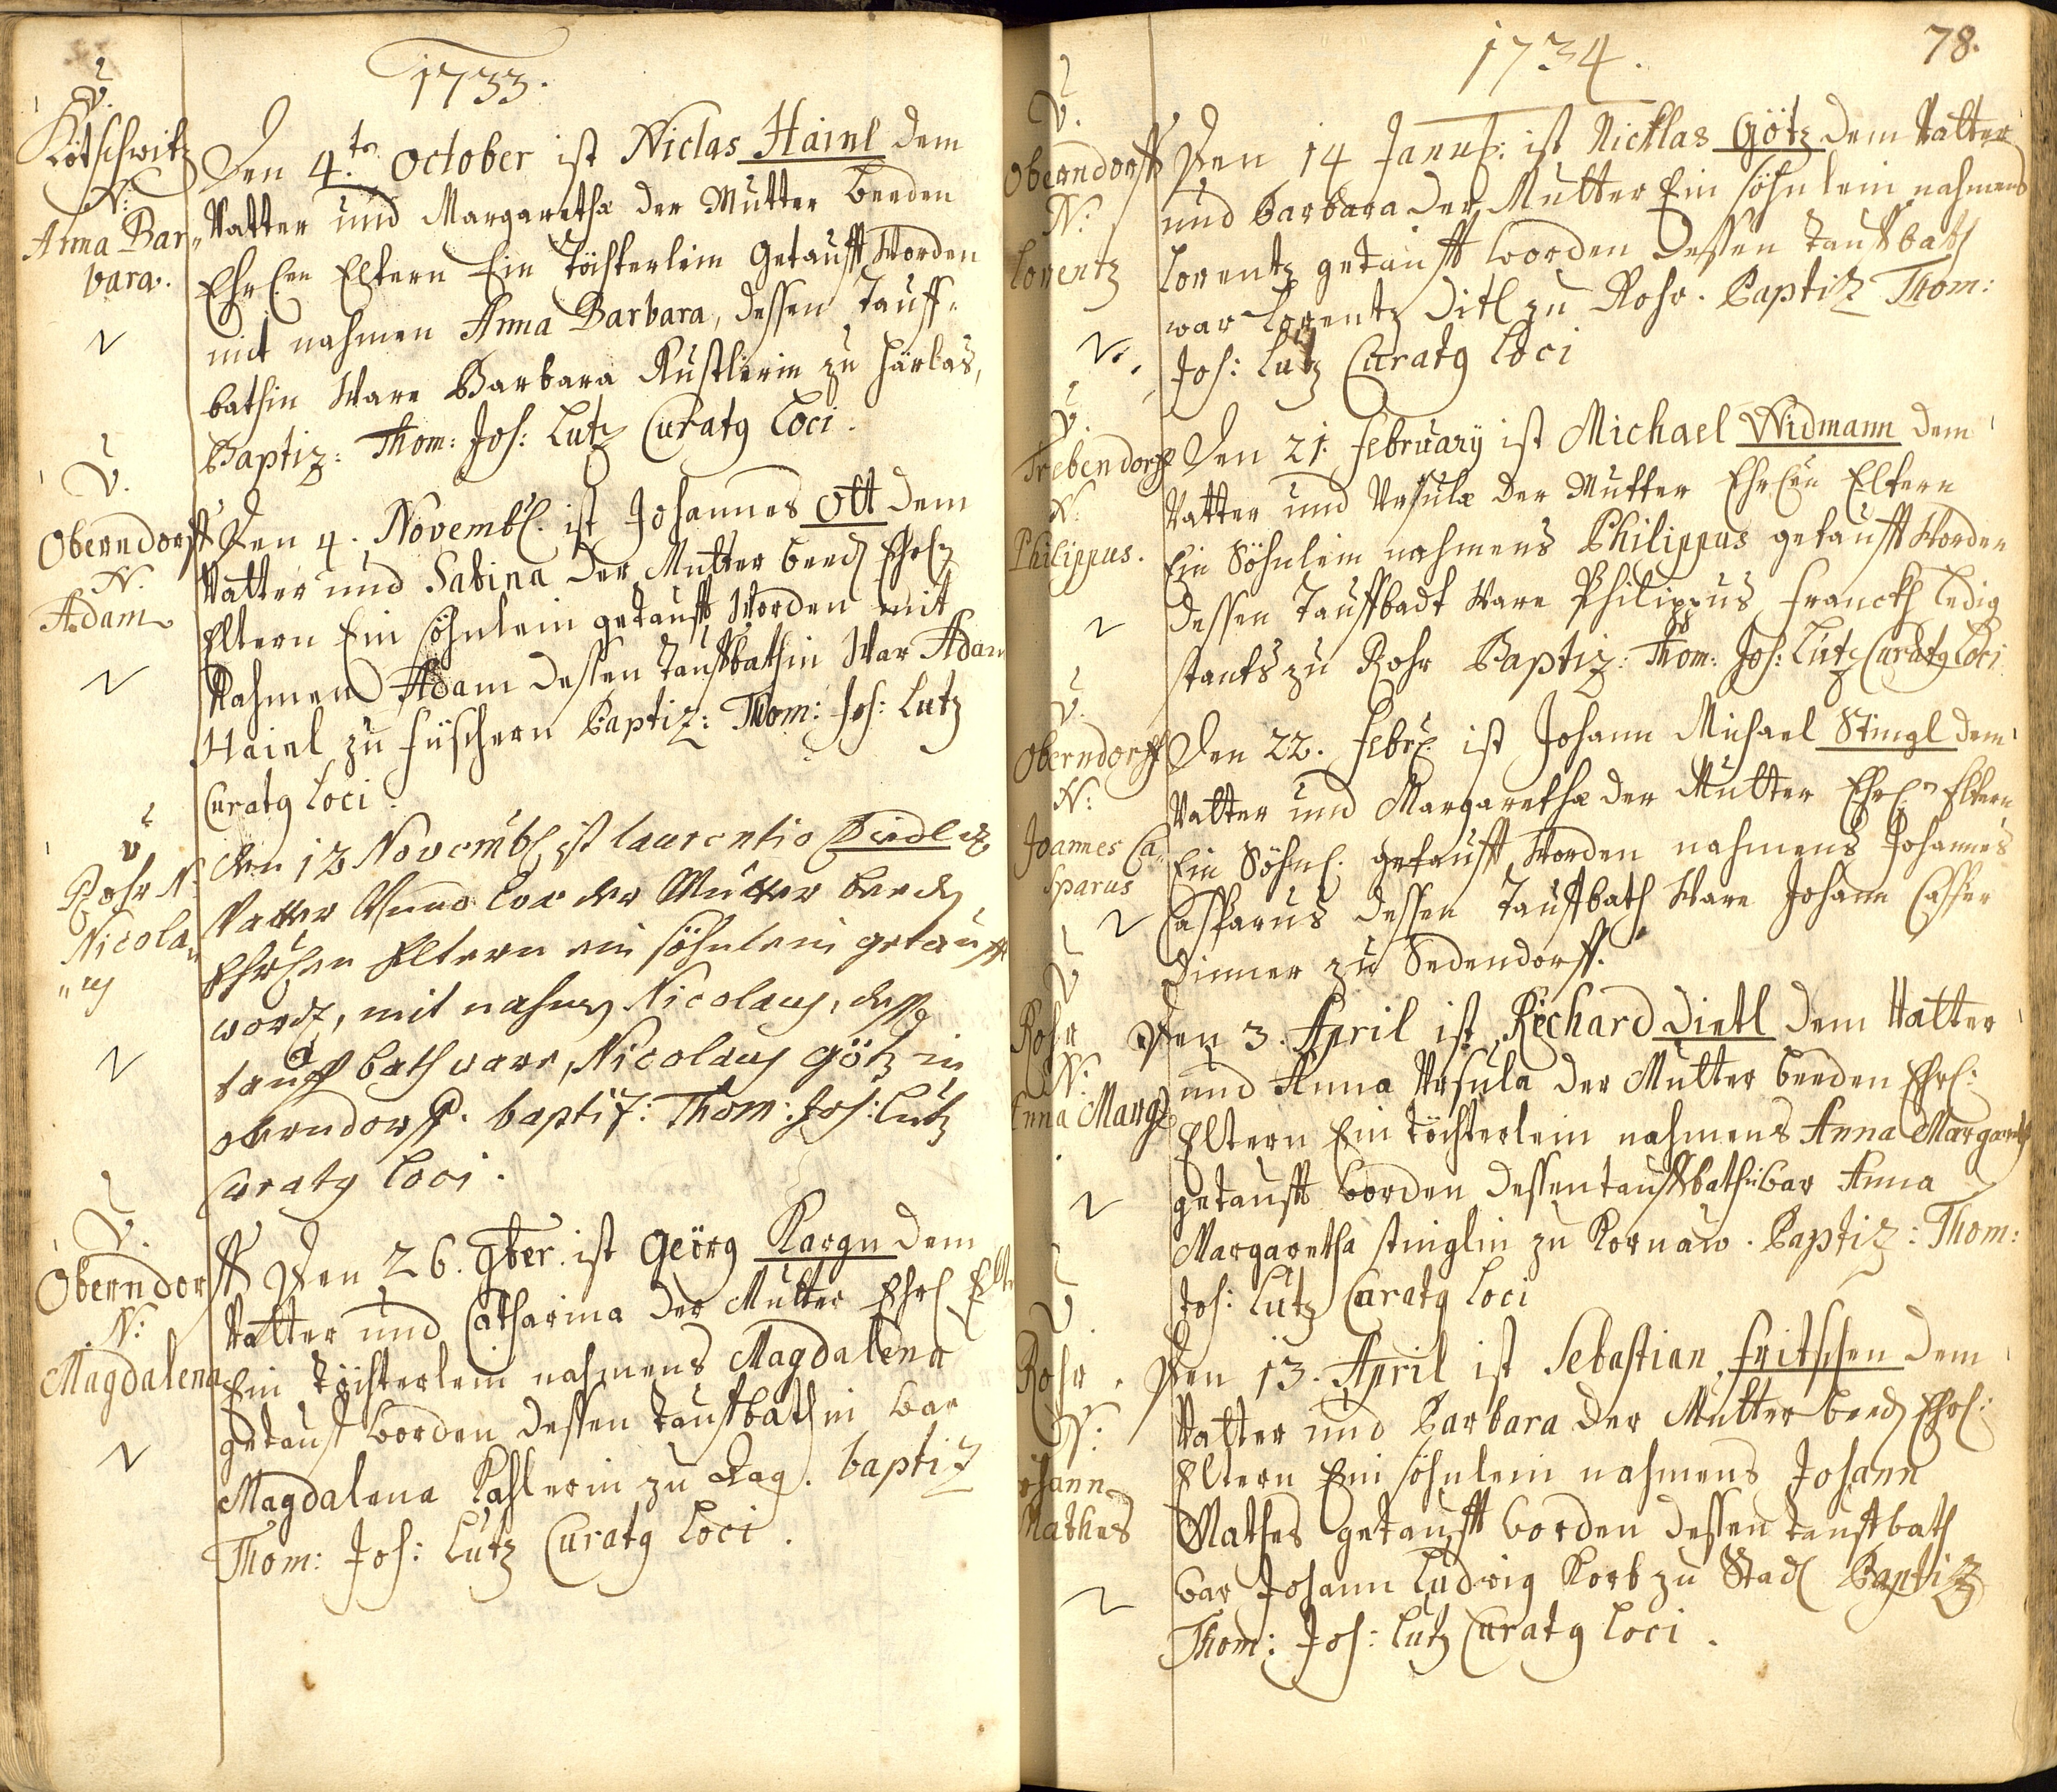 1733.
V.
Kötschwitz
N:
Anna Bar„
bara.
Den 4.ten October ist Niclas Hainl dem
Vatter und Margaretha der Mutter beeden
Ehrl.en Eltern Ein Töchterlein Getaufft Worden
mit nahmen Anna Barbara, dessen Tauff„
bathin Ware Barbara Rustlerin zu Härlas,
Baptiz: Thom: Joh: Lutz Curatg Loci.
V.
Oberndorff
N.
Adam
Den 4. Novembl. ist Johannes Ott dem
Vatter und Sabina der Mutter beed Ehrl
Eltern Ein söhnlein getaufft Worden mit
Nahmen Adam dessen Tauffbathin War Adam
Hainl zu Füschern Baptiz: Thom: Joh: Lutz
Curatg Loci.
V
Rohr N.
Nicola„
„ug
den 12 Novembl ist laurentio
Vatter Unnd Eva der Mutter beed
Ehrlichen Eltern ein söhnlein getaufft
word, mit nahmen Nicolaus, dessen
tauff bath ware, Nicolaus Götz in
oberndorff. baptiz: Thom: Joh: Lutz
Curatg Loci.
V.
Oberndorff
N:
Magdalena
Den 26. 9ber. ist Geörg Kargn dem
Vatter und Catharina der Mutter Ehrl Elt
Ein Töchterlein nahmens Magdalena
getauft worden dessen Tauffbathin war
Magdalena Kahlerin zu Rag. baptiz
Thom: Joh: Lutz Curatg Loci.
1734.
78.
V.
Oberndorff
N:
Lorentz
Den 14 Janu: ist Nicklas Götz dem Vatter
und Barbara der Mutter Ein söhnlein nahmens
Lorentz getaufft worden dessen Tauffbath
war Lorentz Ditl zu Rohr. Baptiz Thom:
Joh: Lutz Curatg Loci
V.
Trebendorff
N.
Philippus.
Den 21. February ist Michael Widmann dem
Vatter und Ursula der Mutter Ehrl.en Eltern
Ein Söhnlein nahmens Philippus getaufft Worden
dessen Tauffbadt Ware Philippus Franckh ledig
stants zu Rohr Baptiz: Thom: Joh: Lutz Curatg Loci
V.
Oberndorff
N:
Joannes Ca„
sparus
Den 22. Febr. ist Johann Michael Stingl dem
Vatter und Margaretha der Mutter Ehrl.n Eltern
Ein Söhnl. getaufft Worden nahmens Johannes
Casparus dessen Tauffbath Ware Johann Casper
Dinner zu Sedendorff.
V
Rohr
N:
Anna Marg
Den 3. April ist Richard Dietl dem Vatter
und Anna Ursula der Mutter beeden Ehrl:
Eltern Ein töchterlein nahmens Anna Margareth
getaufft worden dessen tauffbathin war Anna
Margaretha stinglin zu Kornaw. Baptiz: Thom:
Joh: Lutz Curatg Loci
V.
Rohr.
N:
Johann
Mathes
Den 13. April ist Sebastian Fritschen dem
Vatter und Barbara der Mutter beed Ehrl:
Eltern Ein söhnlein nahmens Johann
Mathes getaufft worden dessen tauffbath
war Johann Ludwig Korb zu Stad Baptiz
Thom: Joh: Lutz Curatg Loci.